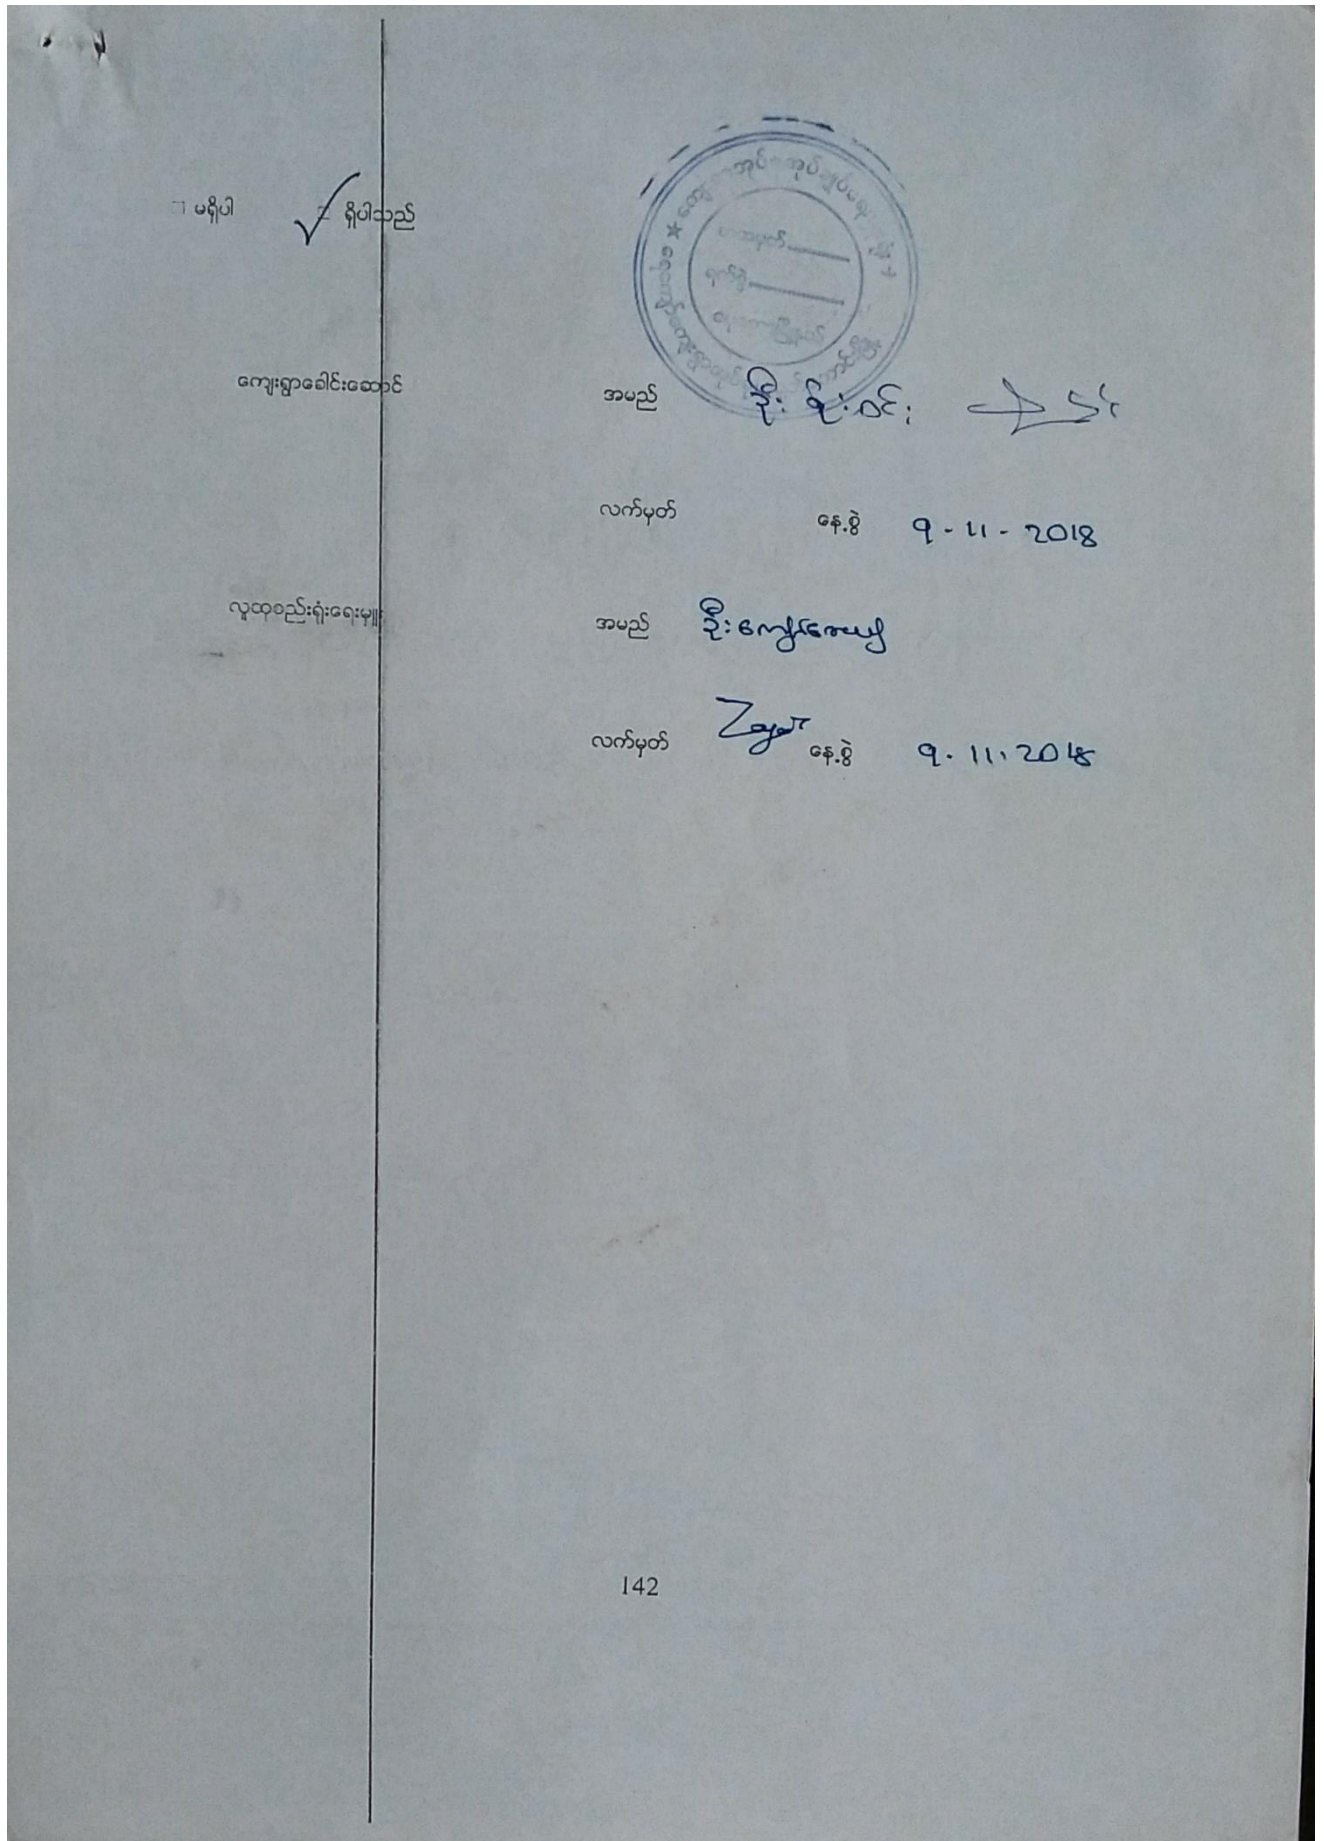 □ မရှိပါ □ ရှိပါသည်
ကျေးရွာခေါင်းဆောင် အမည် ဦး ဝင်း
လက်မှတ် နေ့စွဲ 9-11-2018
လူထုစည်းရုံးရေးမှူး အမည် ဦးကျော်ဇေယျ
လက်မှတ် နေ့စွဲ 9.11.2018
142